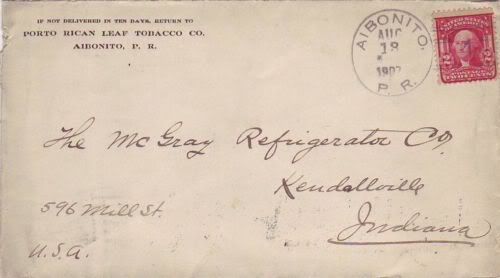 IF NOT DELIVERED IN TEN DAYS, RETURN TO
PORTO RICAN LEAF TOBACCO CO.
AIBONITO, P. R.
AIBONITO.
AUG
18
P. R.
UNITED STATES OF AMERICA
2 2
POSTAGE
TWO CENTS
The McGray Refrigerator Co.
Kendallville
596 Mill St.
Indiana
U.S.A.